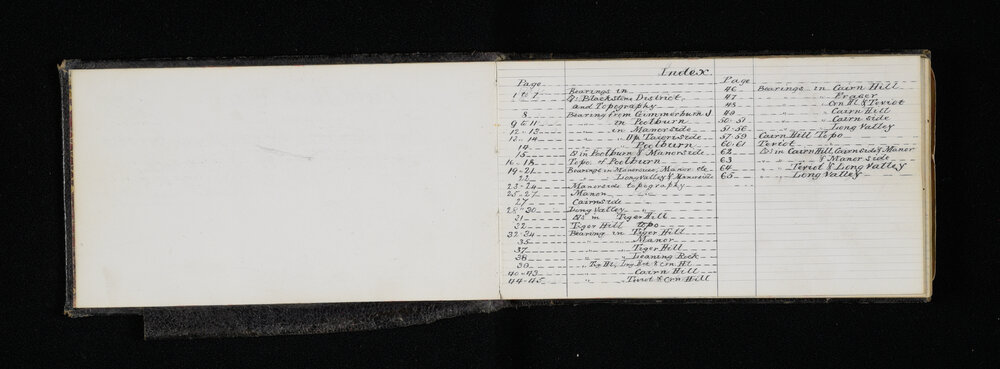 Index.
Page
1 to 7 Bearings in
Blackstone District,
and Topography
8 Bearing from Gimmerburn
9 to 11 " " in Poolburn
12-13 " " in Manorside
13-14 " " Up Taieriside
14 " " Poolburn
15 in Poolburn & Manorside
16-18 Topo. of Poolburn
19-21 Bearings in Manorside, Manor etc
22 " " Long Valley & Manorside
23-24 Manorside topography
25-27 Manor " "
27 Cairnside " "
28-30 Long Valley " "
31 in Tiger Hill
32 Tiger Hill topo
32-34 Bearing in Tiger Hill
35 " " Manor
37 " " Tiger Hill
38 " " Leaning Rock
39 " Tig Hl, Lng Rck & Crn Hl
40-43 " " Cairn Hill
44-45 " " Teviot & Crn Hill
Page
46 Bearings in Cairn Hill
47 " " " Fraser
48 " " " Crn Hl & Teviot
49 " " " Cairn Hill
50-51 " " " Cairn side
51-56 " " " Long Valley
57-59 Cairn Hill Topo
60-61 Teviot " "
62 in Cairn Hill Cairnside & Manor
63 " " " & Manor side
64 " " Teviot & Long Valley
65 " " Long Valley